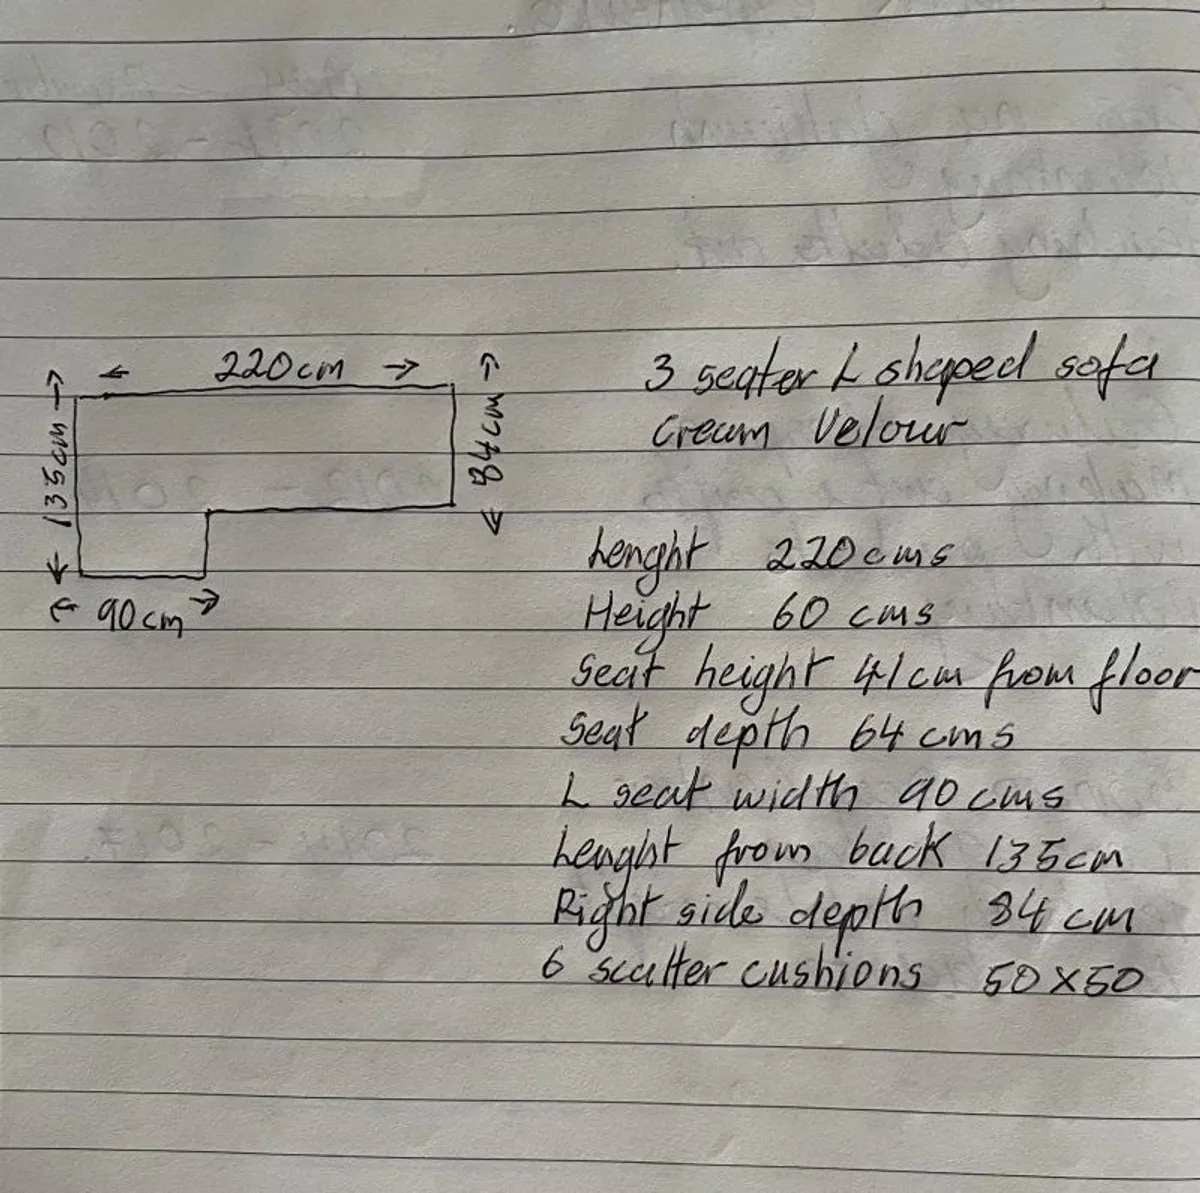 220cm
135cm
84cm
90cm
3 seater L shaped sofa
Cream Velour
Lenght 220cms
Height 60 cms
Seat height 41cm from floor
Seat depth 64 cms
L seat width 90 cms
Lenght from back 135cm
Right side depth 84 cm
6 scatter cushions 50x50